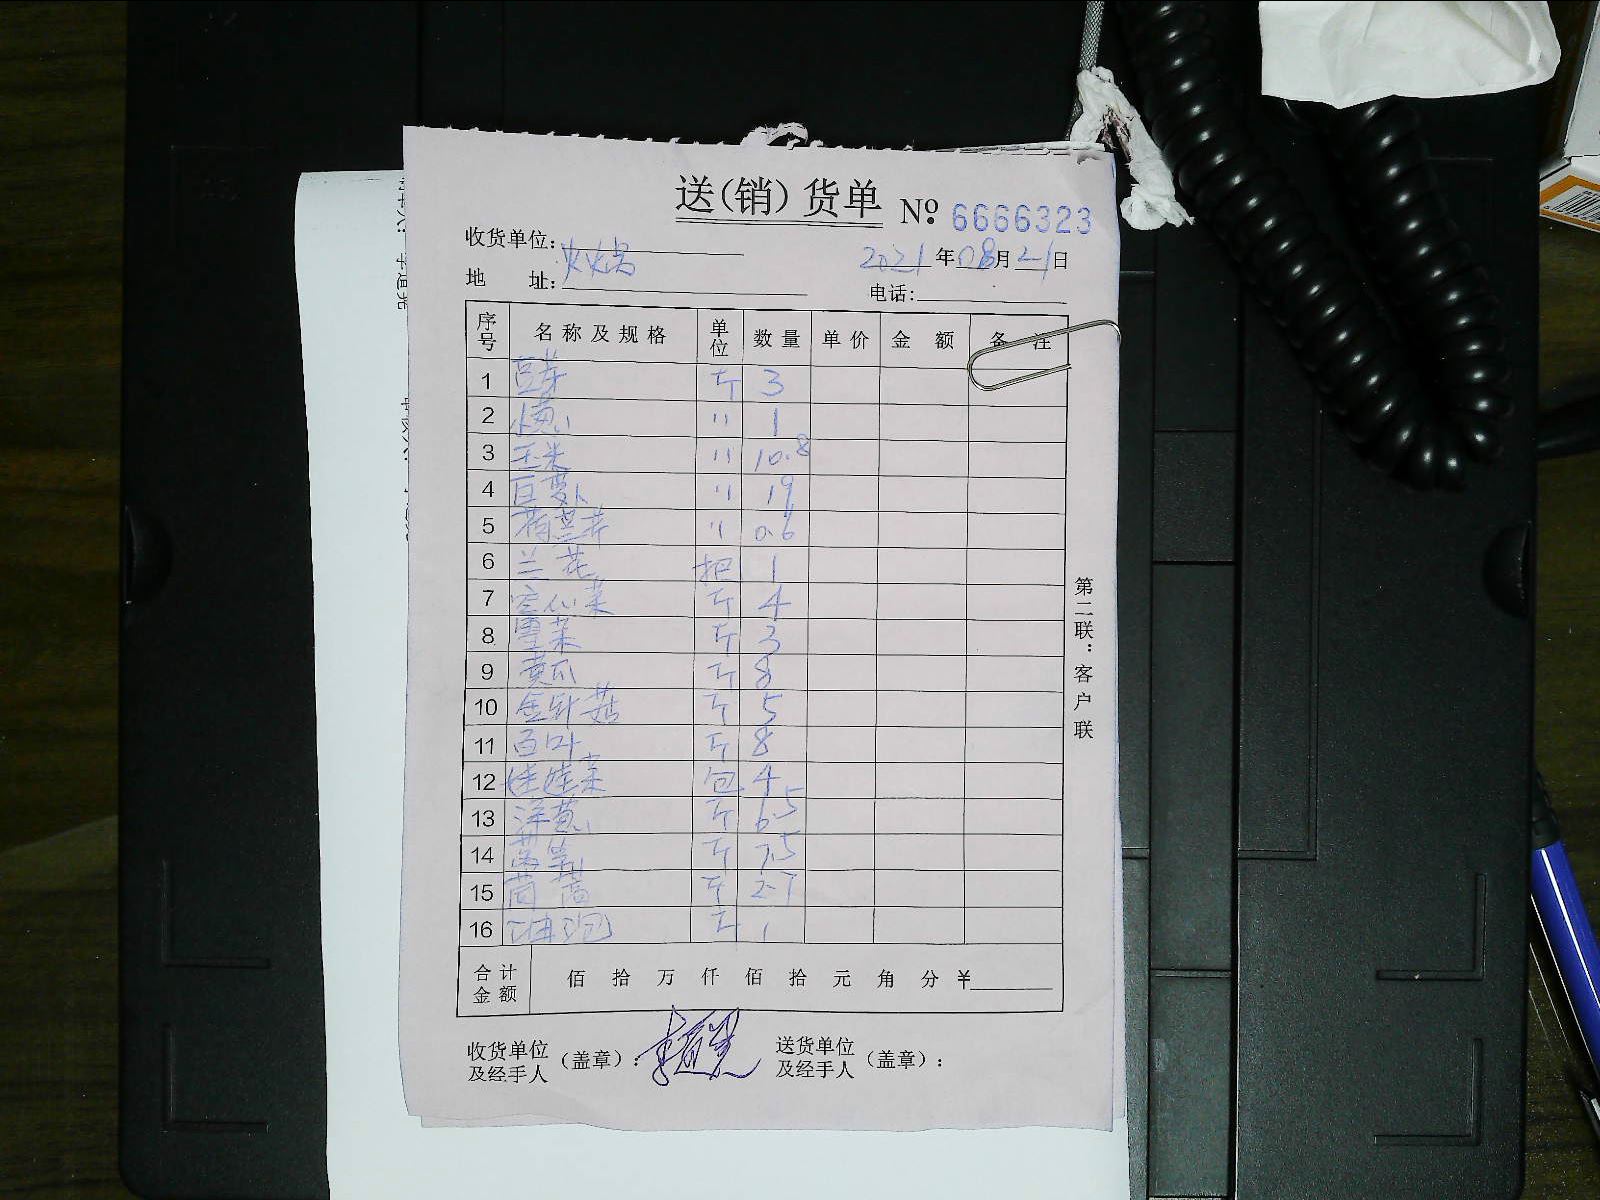 送(销)货单 № 6666323
收货单位: 火锅 2021年08月21日
地 址: 电话:
序号 名称及规格 单位 数量 单价 金额 备注
1 豆芽 斤 3
2 小葱 〃 1
3 玉米 〃 10.8
4 白萝卜 〃 19
5 荷兰芹 〃 0.6
6 兰花 把 1
7 空心菜 斤 4
8 雪菜 斤 3
9 黄瓜 斤 8
10 金针菇 斤 5
11 百叶 斤 8
12 娃娃菜 包 4
13 洋葱 斤 6.5
14 莴笋 斤 7.5
15 茼蒿 斤 2.7
16 油泡 斤 1
合计金额 佰 拾 万 仟 佰 拾 元 角 分 ¥
收货单位及经手人(盖章): 送货单位及经手人(盖章):
第二联:客户联